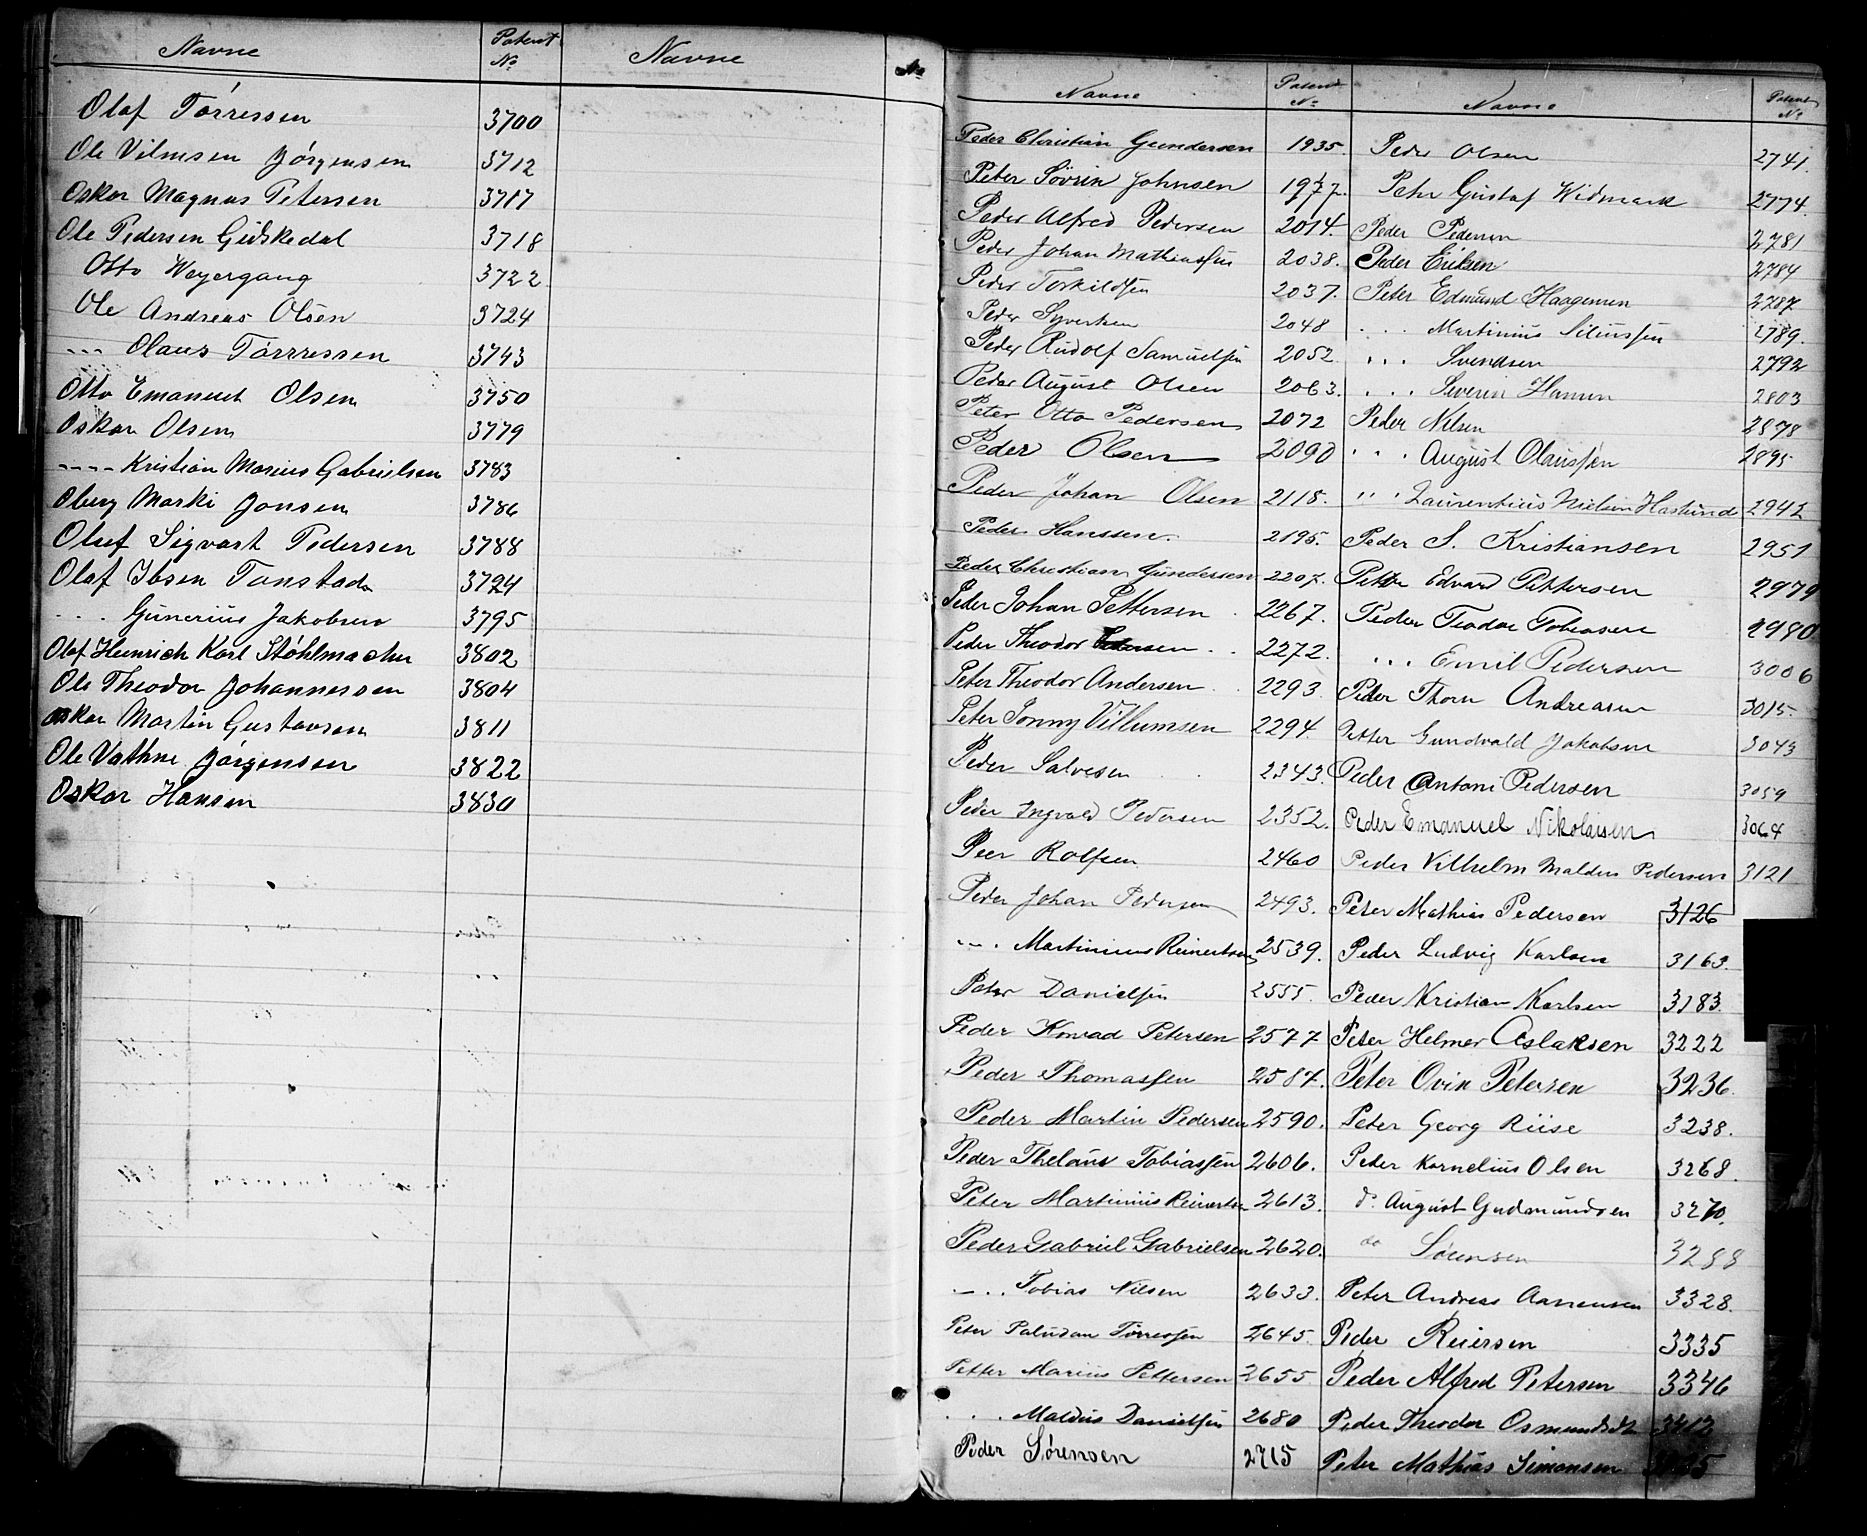 Navne Patent No Navne No
Olaf Tørressen 3700
Ole Vilmsen Jørgensen 3712
Oskar Magnus Petersen 3717
Ole Pedersen Gidskedal 3718
Otto Weyergang 3722
Ole Andreas Olsen 3724
--- Olaus Tørrressen 3743
Otto Emanuel Olsen 3750
Oskar Olsen 3779
---- Kristian Marius Gabrielsen 3783
Oberg Marki Jonsen 3786
Oluf Sigvart Pedersen 3788
Olaf Ibsen Tonstad 3794
. . . Gunerius Jakobsen 3795
Olaf Heinrich Karl Støhlmacher 3802
Ole Theodor Johannessen 3804
Oskar Martin Gustavsen 3811
Ole Vathne Jørgensen 3822
Oskar Hansen 3830
Navne Patent No
Peder Christian Gundersen 1935.
Peter Sövrin Johnsen 1977.
Peder Alfred Pedersen 2014.
Peder Johan Mathiassen 2038.
Peder Torkildsen 2037.
Peder Syvertsen 2048
Peder Rudolf Samuelsen 2052
Peder August Olsen 2063.
Peter Otto Pedersen 2072
Peder Olsen 2090
Peder Johan Olsen 2118.
Peder Hanssen 2195.
Peder Christian Gundersen 2207.
Peder Johan Pettersen 2267.
Peder Theodor 2272.
Peter Theodor Andersen 2293.
Peter Jonny Villumsen 2294.
Peder Salvesen 2343.
Peder Ingvald Pedersen 2352.
Peer Rolfsen 2460
Peder Johan Pedersen 2493.
-.. Martinius Reinertsen 2539.
Peter Danielsen 2555.
Peder Konrad Petersen 2577
Peder Thomassen 2587.
Peder Martin Pedersen 2590.
Peder Thelaus Tobiassen 2606.
Peter Martinius Reinertsen 2613.
Peder Gabriel Gabrielsen 2620.
-.. Tobias Nilsen 2633.
Peter Paludan Tørressen 2645.
Petter Marius Pettersen 2655
. . . Maldus Danielsen 2680
Peder Sørensen 2715
Navne Patent No
Peder Olsen 2741.
Peter Gustaf Widmark 2774.
Peder Pedersen 2781
Peder Eriksen 2784
Peter Edmund Haagensen 2787
. . . Martinius Siliussen 2789.
. . . Svendsen 2792
. . . Severin Hansen 2803
Peder Nilsen 2878
. . . August Olaussen 2895
. . . Laurentius Nielsen Haslund 2942
Peder S. Kristiansen 2951
Petter Edvard Pettersen 2979
Peder Teodor Tobiasen 2980
. . . Emil Pedersen 3006
Peder Thorn Andreasen 3015.
Petter Gundvald Jakobsen 3043
Peder Antoni Pedersen 3059
Peder Emanuel Nikolaisen 3064
Peder Vilhelm Maldus Pedersen 3121
Peter Mathias Pedersen 3126
Peder Ludvig Karlsen 3163.
Peder Kristian Karlsen 3183.
Peter Helmer Aslaksen 3222
Peter Ovin Petersen 3236.
Peter Georg Riise 3238.
Peder Kornelius Olsen 3268.
do August Gudmundsen 3270.
do Sørensen 3288
Peter Andreas Aanensen 3328.
Peder Reiersen 3335
Peder Alfred Petersen 3346
Peder Theodor 3412
Peter Mathias Simonsen